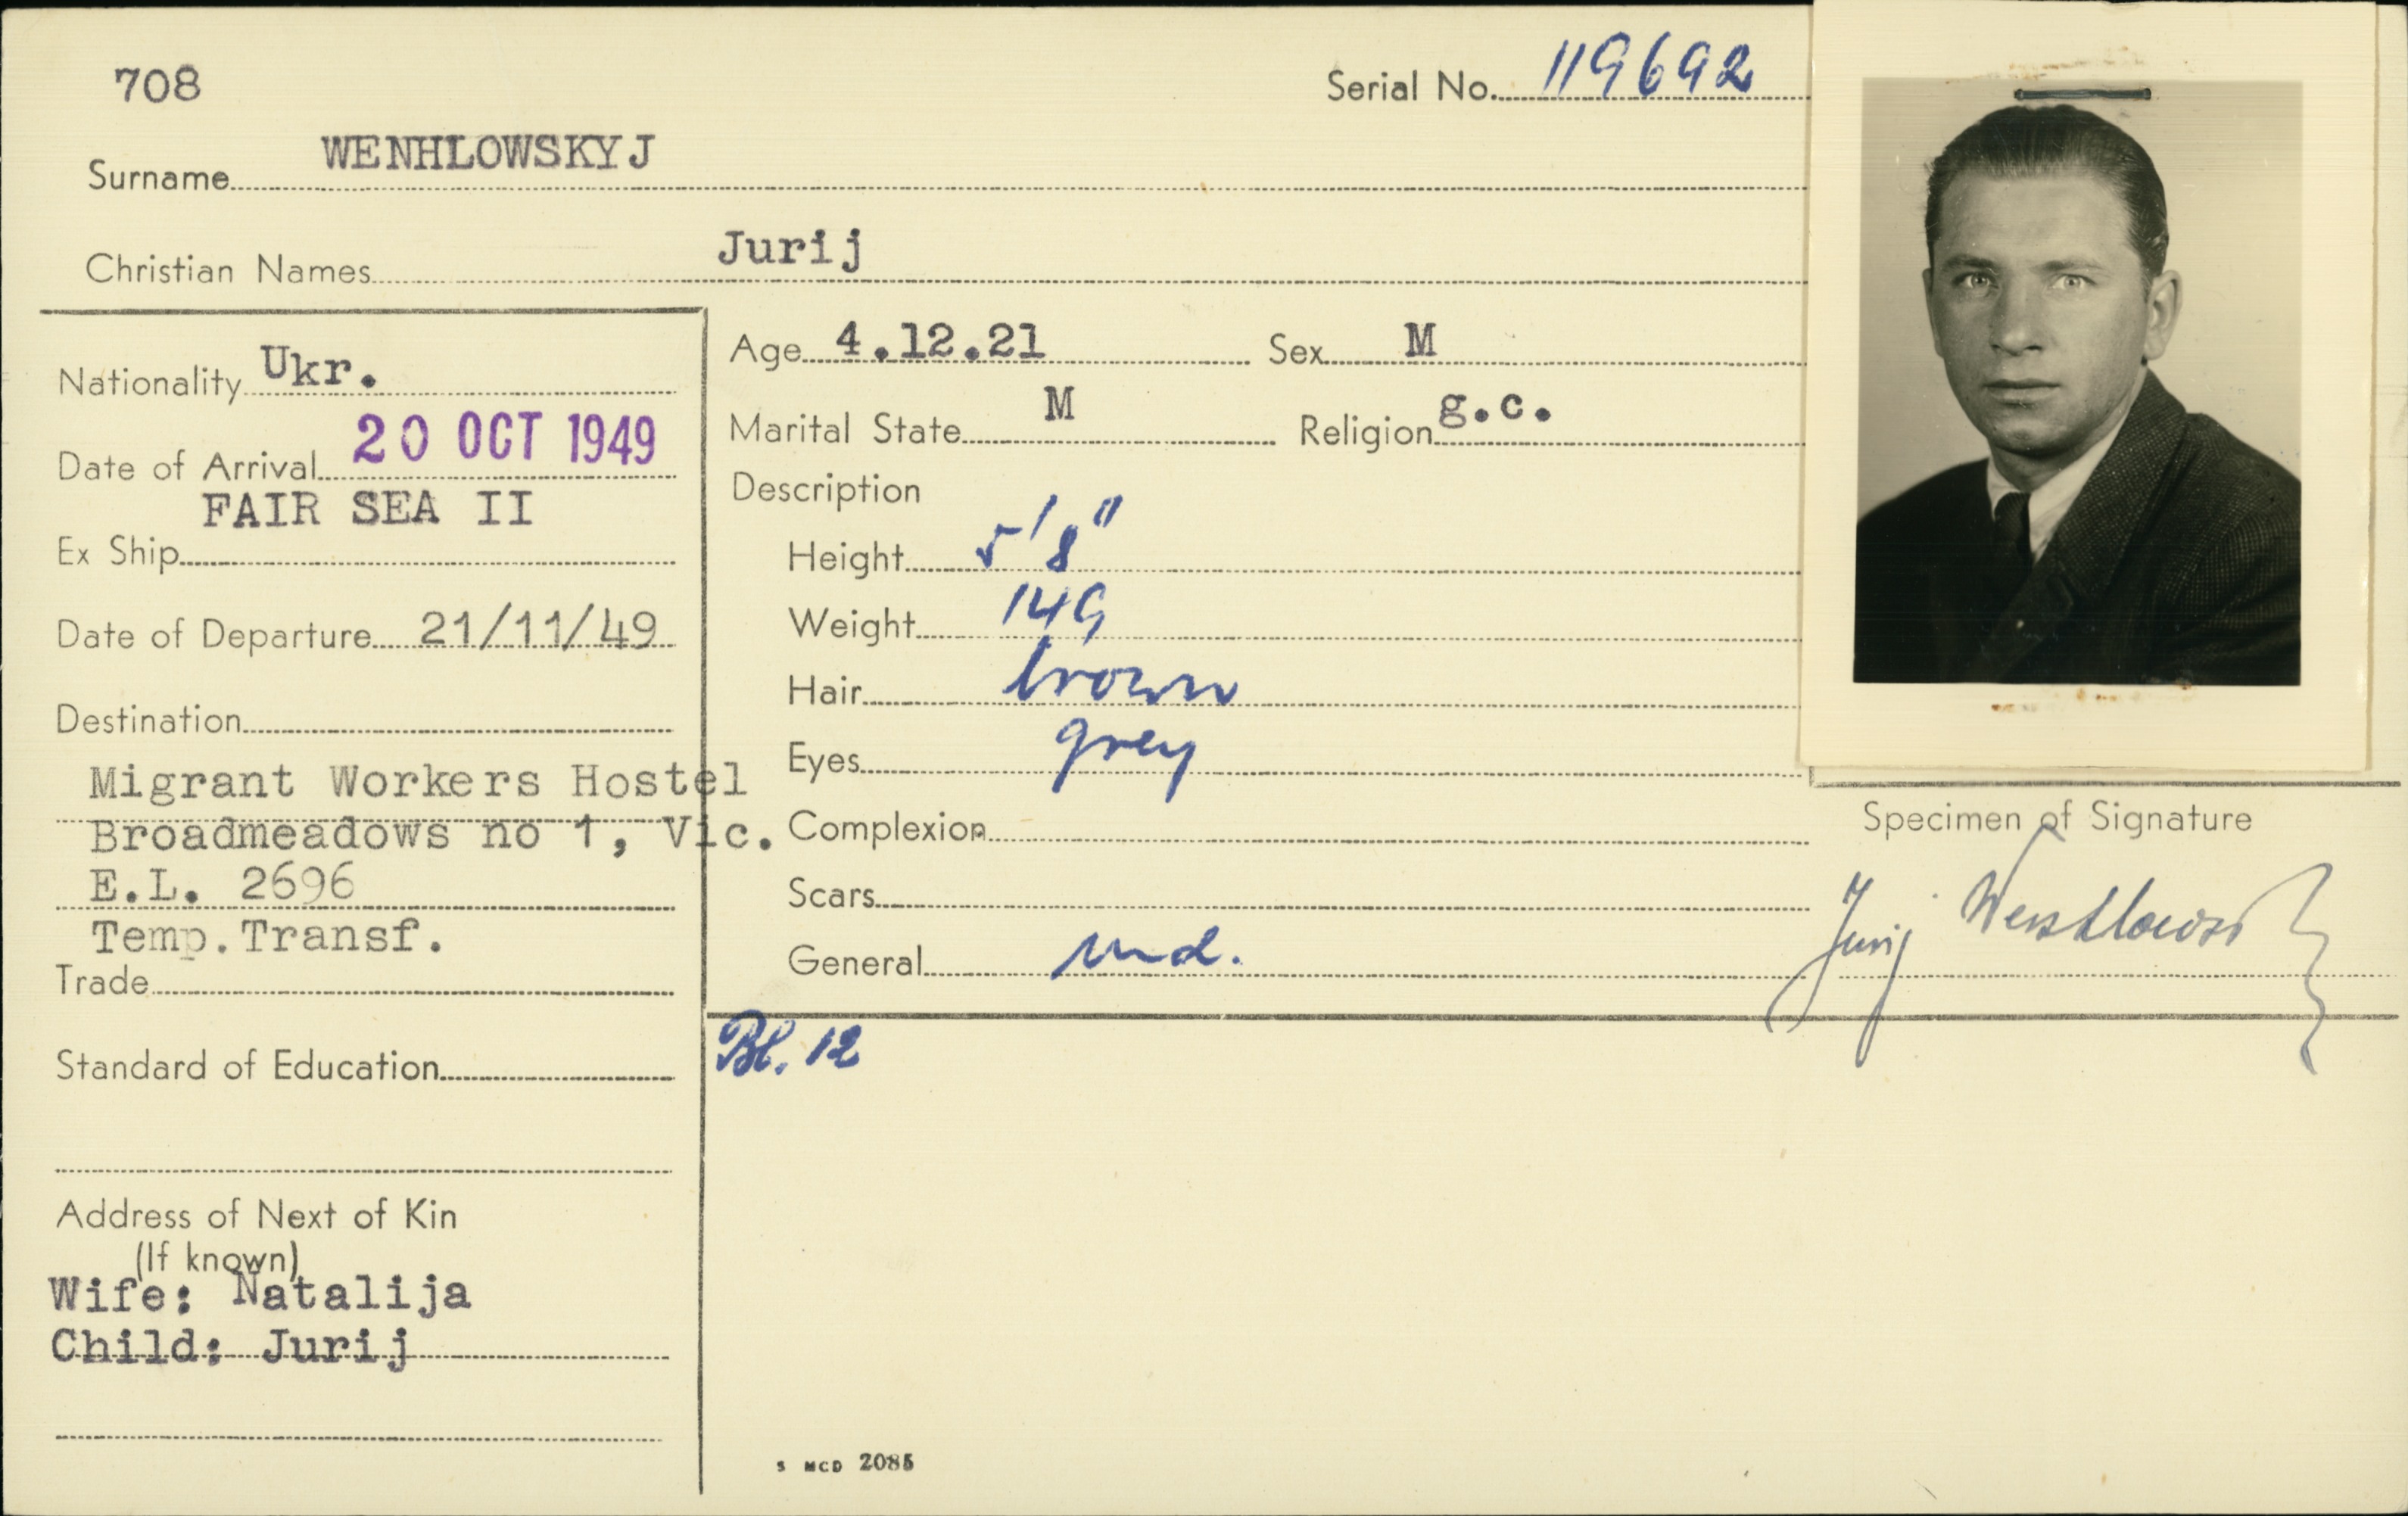 708
Serial No. 119692
Surname WENHLOWSKYJ
Christian Names Jurij
Nationality Ukr.
Date of Arrival 20 OCT 1949
FAIR SEA II
Ex Ship
Date of Departure 21/11/49
Destination
Migrant Workers Hostel
Broadmeadows no 1, Vic.
E.L. 2696
Temp.Transf.
Trade
Standard of Education
Address of Next of Kin
(If known)
Wife: Natalija
Child: Jurij
Age 4.12.21 Sex M
Marital State M Religion g.c.
Description
Height 5'8"
Weight 149
Hair brown
Eyes grey
Complexion
Scars
General md.
Bl. 12
S MCD 2085
Specimen of Signature
Jurij